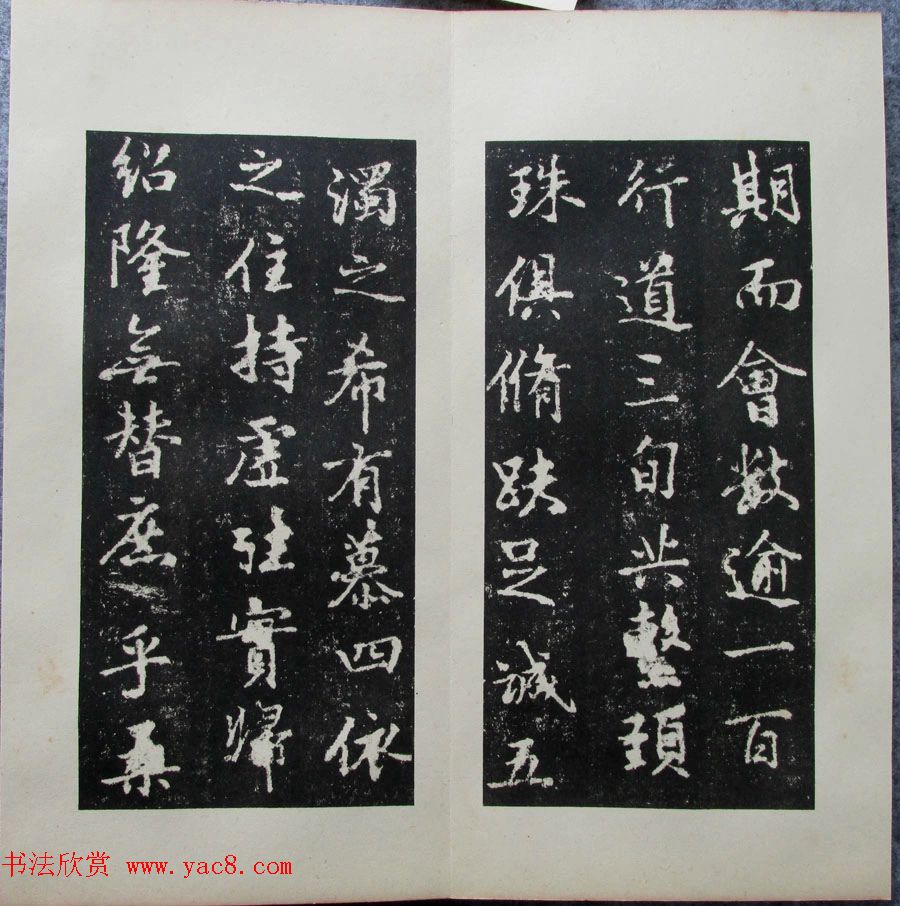 期而會數逾一百
行道三旬共繫頸
珠俱脩趺足誠五
濁之希有慕四依
之住持虛往實歸
紹隆無替庶乎桑
书法欣赏 www.yac8.com